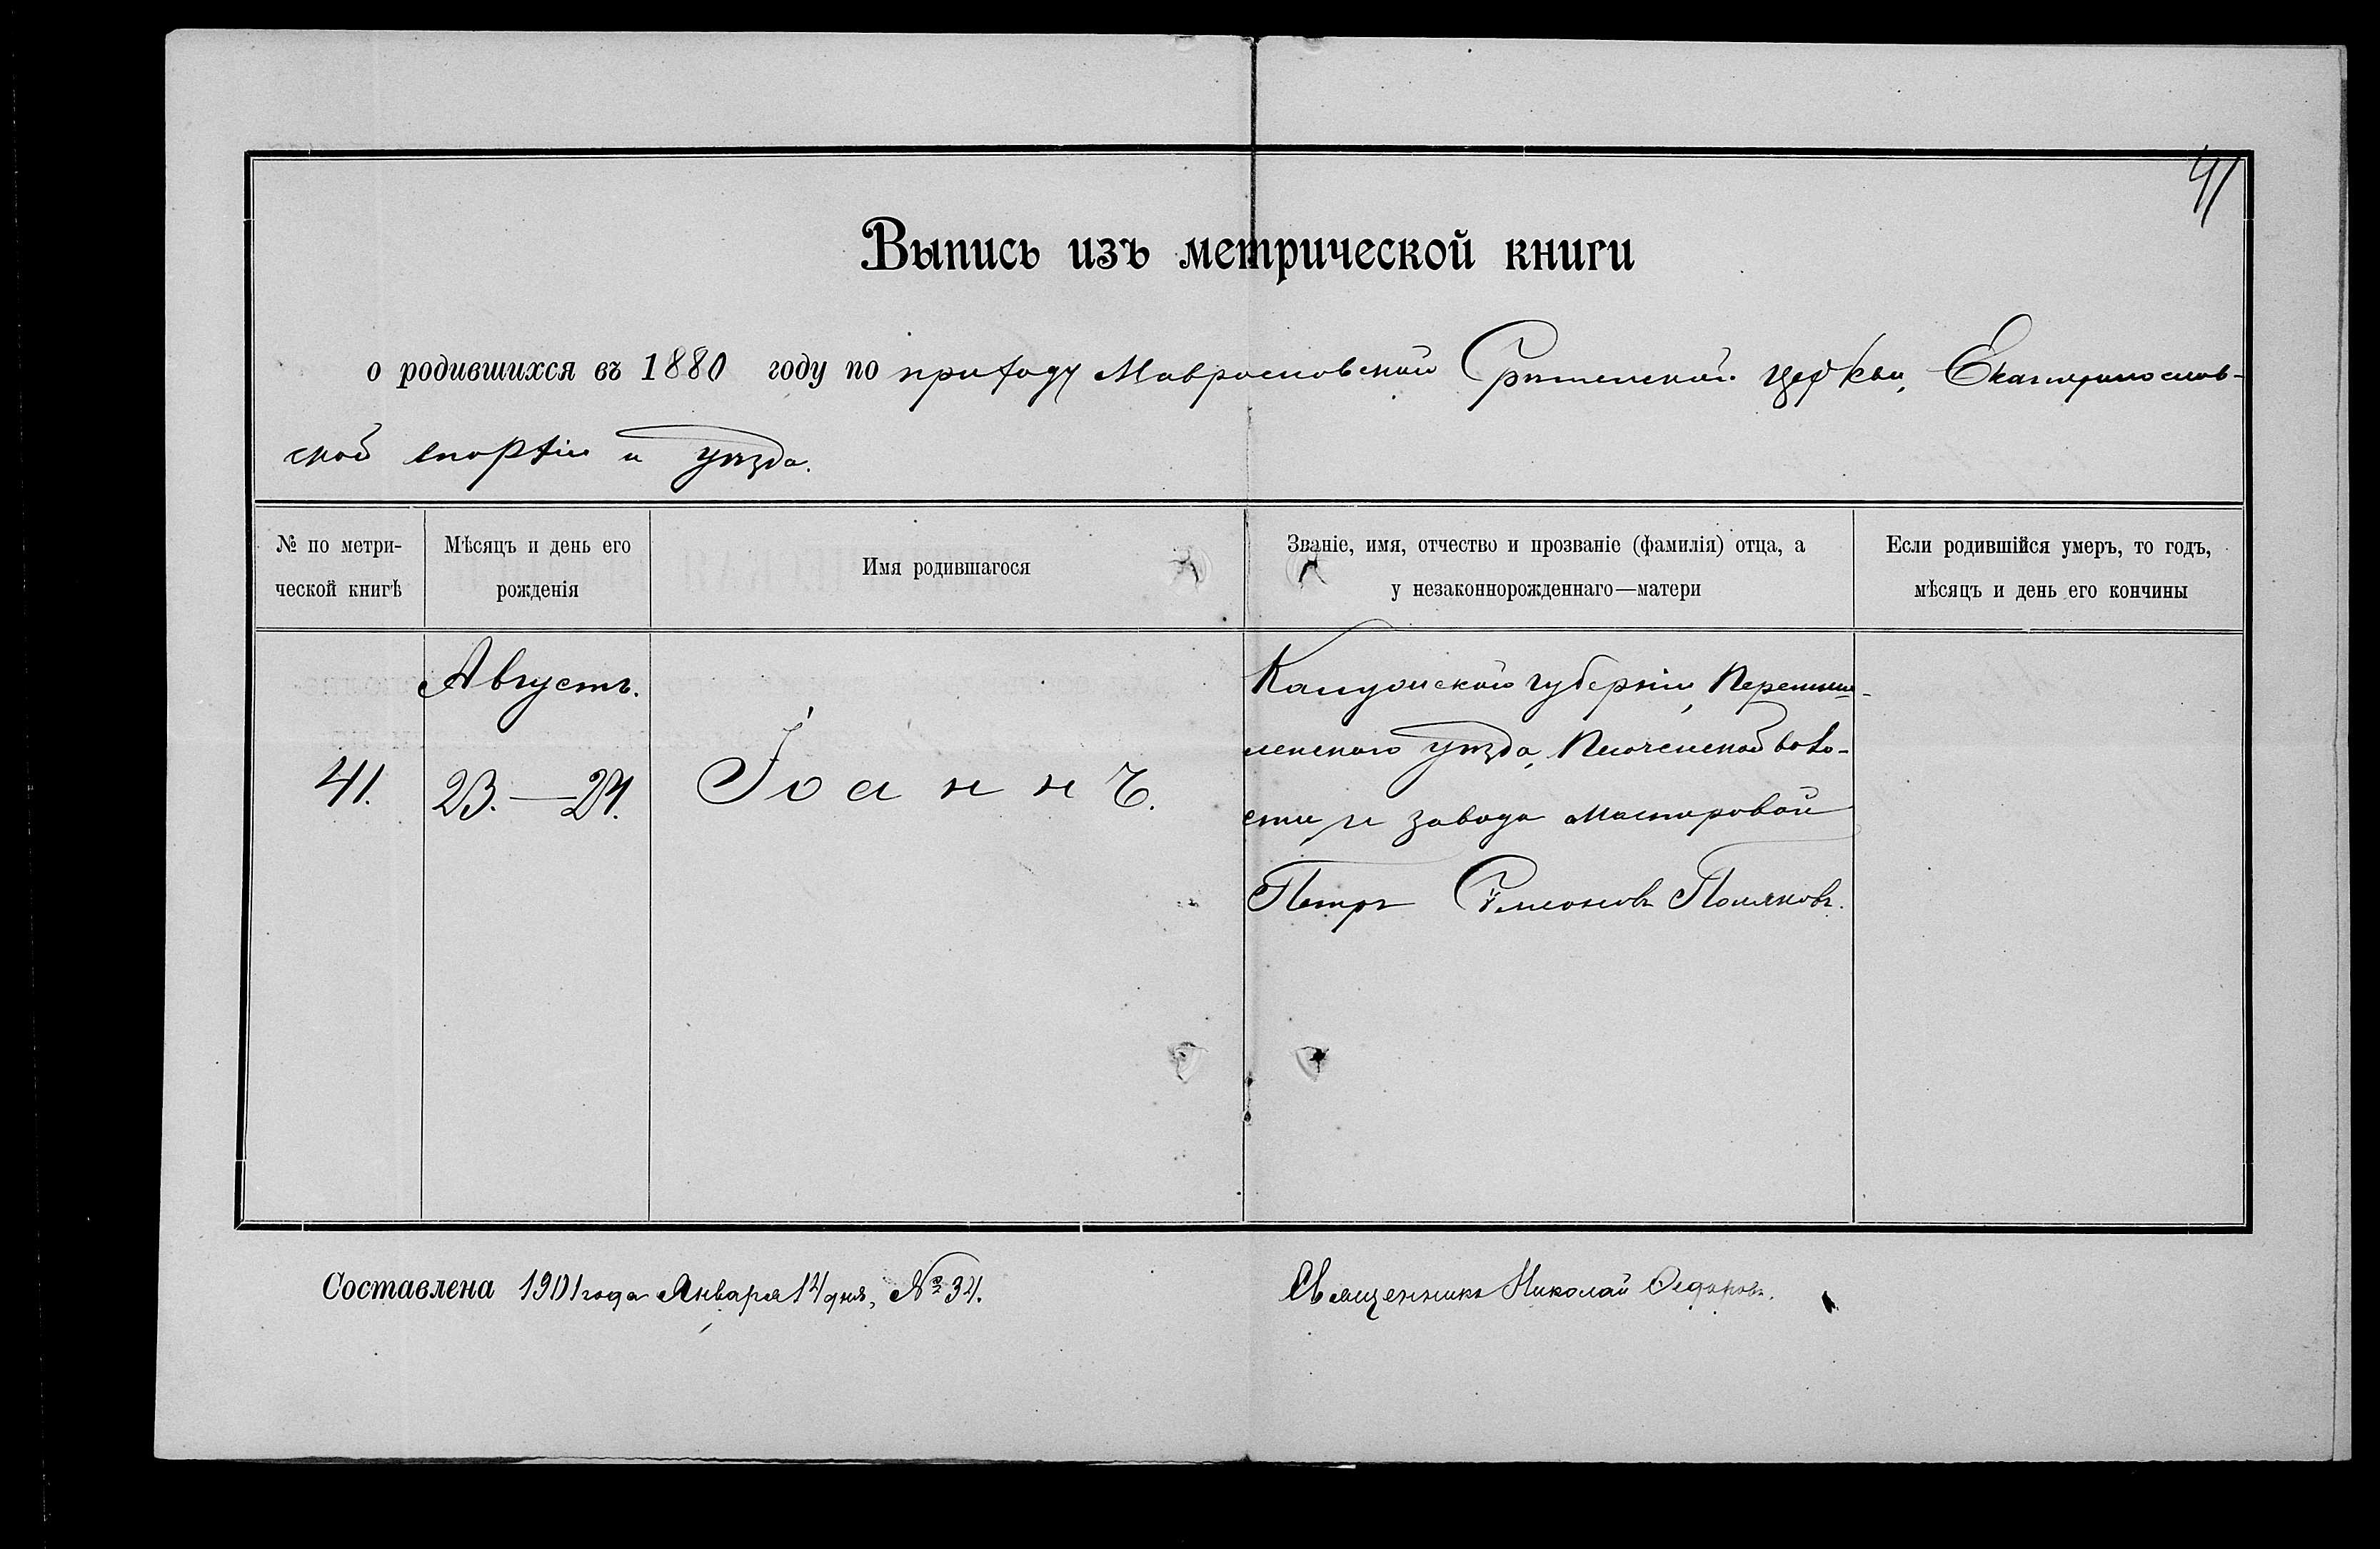 41
Выпись изъ метрической книги
о родившихся въ 1880 году по приходу Сртьтенской церкви, Екатеринослав-
ской епархіи и уѣзда.
№ по метри-
ческой книгѣ
Мѣсяцъ и день его
рожденія
Имя родившагося
Званіе, имя, отчество и прозваніе (фамилія) отца, а
у незаконнорожденнаго—матери
Если родившійся умеръ, то годъ,
мѣсяцъ и день его кончины
41.
Августъ.
23.—24.
Іоаннъ.
Калужской губерніи, Перемыш-
ленскаго уѣзда, воло-
сти и завода мастеровой
Петръ Симеоновъ Поляковъ.
Составлена 1901 года Января 14 дня, № 34.
Священникъ Николай Федоровъ.